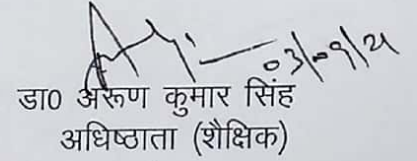 03/09/21
डा0 अरूण कुमार सिंह
अधिष्ठाता (शैक्षिक)